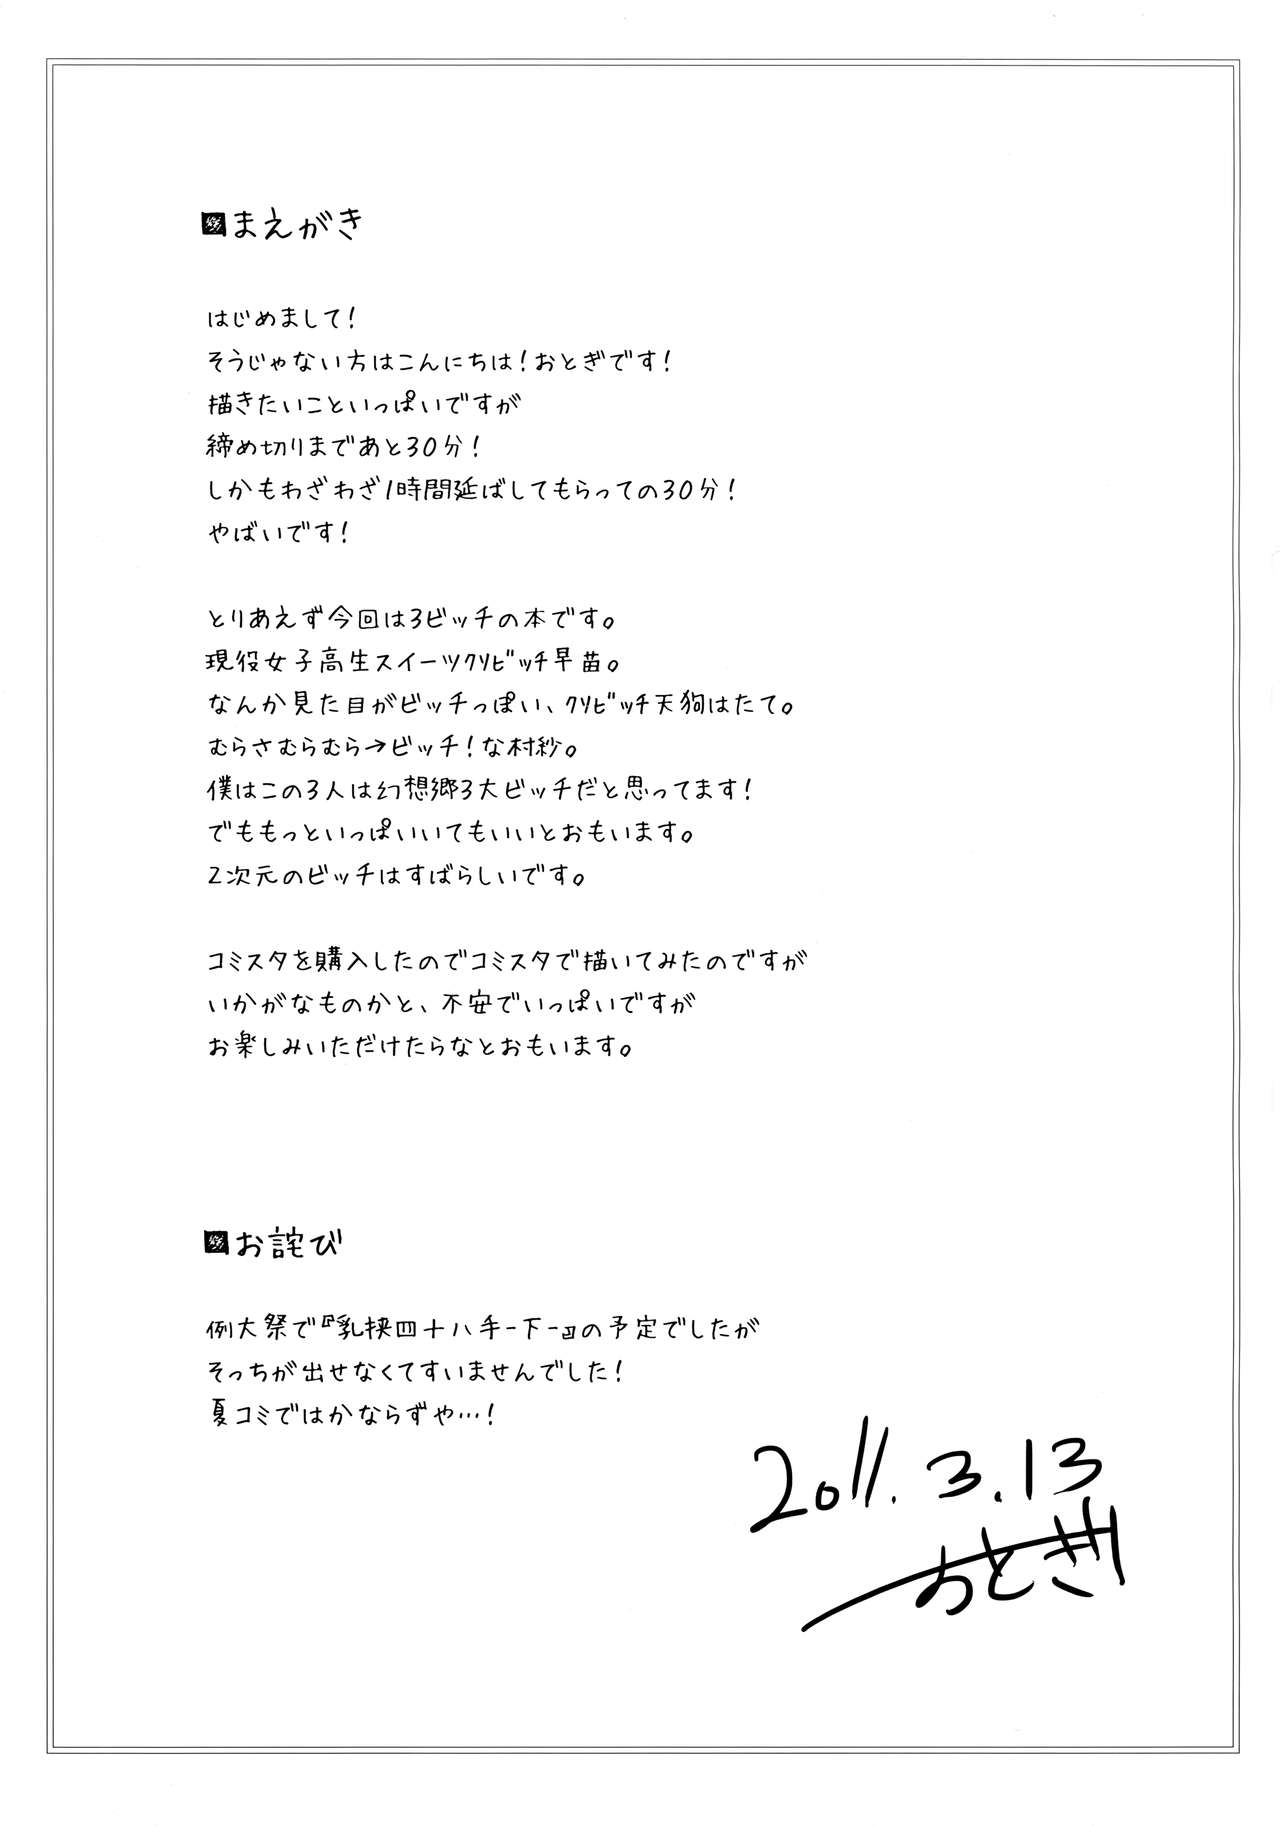 まえがき
はじめまして!
そうじゃない方はこんにちは!おとぎです!
描きたいこといっぱいですが
締め切りまであと30分!
しかもわざわざ1時間延ばしてもらっての30分!
やばいです!
とりあえず今回は3ビッチの本です。
現役女子高生スイーツｸｿﾋﾞｯﾁ早苗。
なんか見た目がビッチっぽい、ｸｿﾋﾞｯﾁ天狗はたて。
むらさむらむら→ビッチ!な村紗。
僕はこの3人は幻想郷3大ビッチだと思ってます!
でももっといっぱいいてもいいとおもいます。
2次元のビッチはすばらしいです。
コミスタを購入したのでコミスタで描いてみたのですが
いかがなものかと、不安でいっぱいですが
お楽しみいただけたらなとおもいます。
お詫び
例大祭で『乳挟四十八手-下-』の予定でしたが
そっちが出せなくてすいませんでした!
夏コミではかならずや…!
2011.3.13
おとぎ